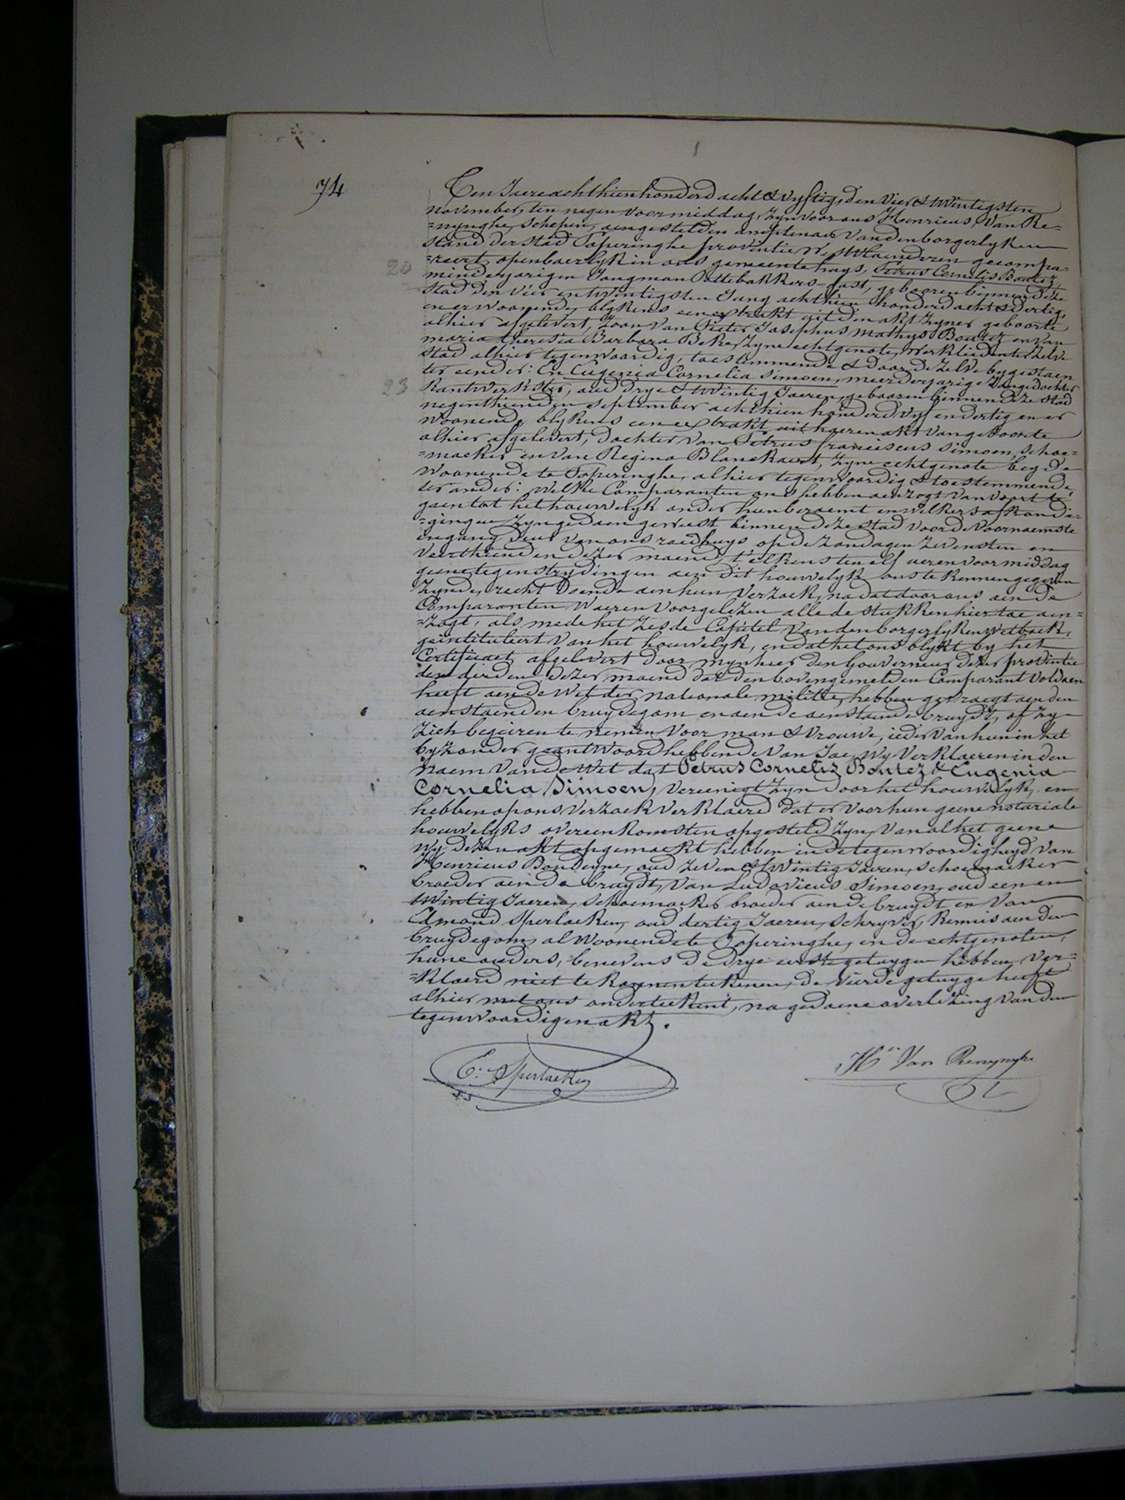 74
Ten Jaere achthienhonderd acht & vyftig, den vier & twintigsten
november, ten negen voormiddag, zyn voor ons Henricus Van Re-
=nynghe, schepen, aengestelden amptenaer van den borgerlyken
stand der stad Poperinghe provintie W. Vlaenderen gecompa-
20 =reert, openbaerlyk in ons gemeentehuys, Petrus Cornelis Boutez,
minderjarigen Jongman Pottebakkers gast, gebooren binnen deze
stad den vier en twintigsten Juny achthien honderd acht & dertig,
en er woonende, blykens een extrakt uit den akt zyner geboorte
alhier afgelevert, zoon van Pieter Josephus Mathys Boutez en van
maria Theresia Barbara Beke, zyne echtgenote, werklieden te dezer
stad alhier tegenwoordig, toestemmende & door dezelve bygestaen
ter eender: En Eugenia Cornelia Simoen, meerderjarige Jongedochter
23 Kantwerkster, oud drye & twintig Jaeren, gebooren binnen deze stad
negenthienden september achthien honderd vyf en dertig en er
woonende, blykens een extrakt uit haeren akt van geboorte
alhier afgelevert, dochter van Petrus franciscus Simoen, schoe-
=maeker en van Regina Blanckaert, zyne echtgenote beyde
woonende te Poperinghe, alhier tegenwoordig & toestemmende
ter ander: Welke Comparanten ons hebben aenzogt van voort te
gaen tot het houwelyk onder hun beraemt en welkers afkondi-
=gingen zyn gedaen geweest binnen deze stad voor de voornaemste
ingang deur van ons raedhuys op de zondagen zevensten en
veerthienden dezer maend t'elkens ten elf uren voormiddag
geene tegenstrydingen aen dit houwelyk ons te kennen gegeven
zynde, recht doende aen hun verzoek, na dat door ons aen de
Comparanten waeren voorgelezen alle de stukken hier toe aen=
=zogt, als mede het zesde Capitel van den borgerlyken wetboek,
geintituleert van het houwelyk, en dat het ons blykt by het
Certificaet afgelevert door mynheer den gouverneur dezer provintie
den derden dezer maend dat den bovengemelden Comparant voldaen
heeft aen de wet der nationale militie, hebben gevraegt aen den
aenstaenden bruydegom en aen de aenstaende bruydt, of zy
zich begeeren te nemen voor man & vrouwe, ieder van hun in het
byzonder geantwoord hebbende van Jae, Wy verklaeren in den
naem van de wet dat Petrus Cornelis Boutez & Eugenia
Cornelia Simoen, vereenigt zyn door het houwelyk, en
hebben op ons verzoek verklaerd dat er voor hun geene notariale
houwelyks overeenkomsten opgesteld zyn, van al het geene
wy dezen akt opgemaekt hebben in de tegenwoordigheyd van
Henricus Boudeyne, oud zeven & twintig Jaeren, schoemaeker
broeder aen de bruydt, van Ludovicus Simoen, oud een en
twintig Jaeren, schoemaeker broeder aen de bruydt en van
Edmond Sperlaeken, oud dertig Jaeren, schryver, kennis aen den
bruydegom, al woonende te Poperinghe, en de echtgenoten,
hune ouders, benevens de drye eerste getuygen hebben ver-
=klaerd niet te konnen teekenen, de vierde getuyge heeft
alhier met ons onderteekent, na gedaene overlezing van den
tegenwoordigen akt.
E: Sperlaeken Hen Van Renynghe